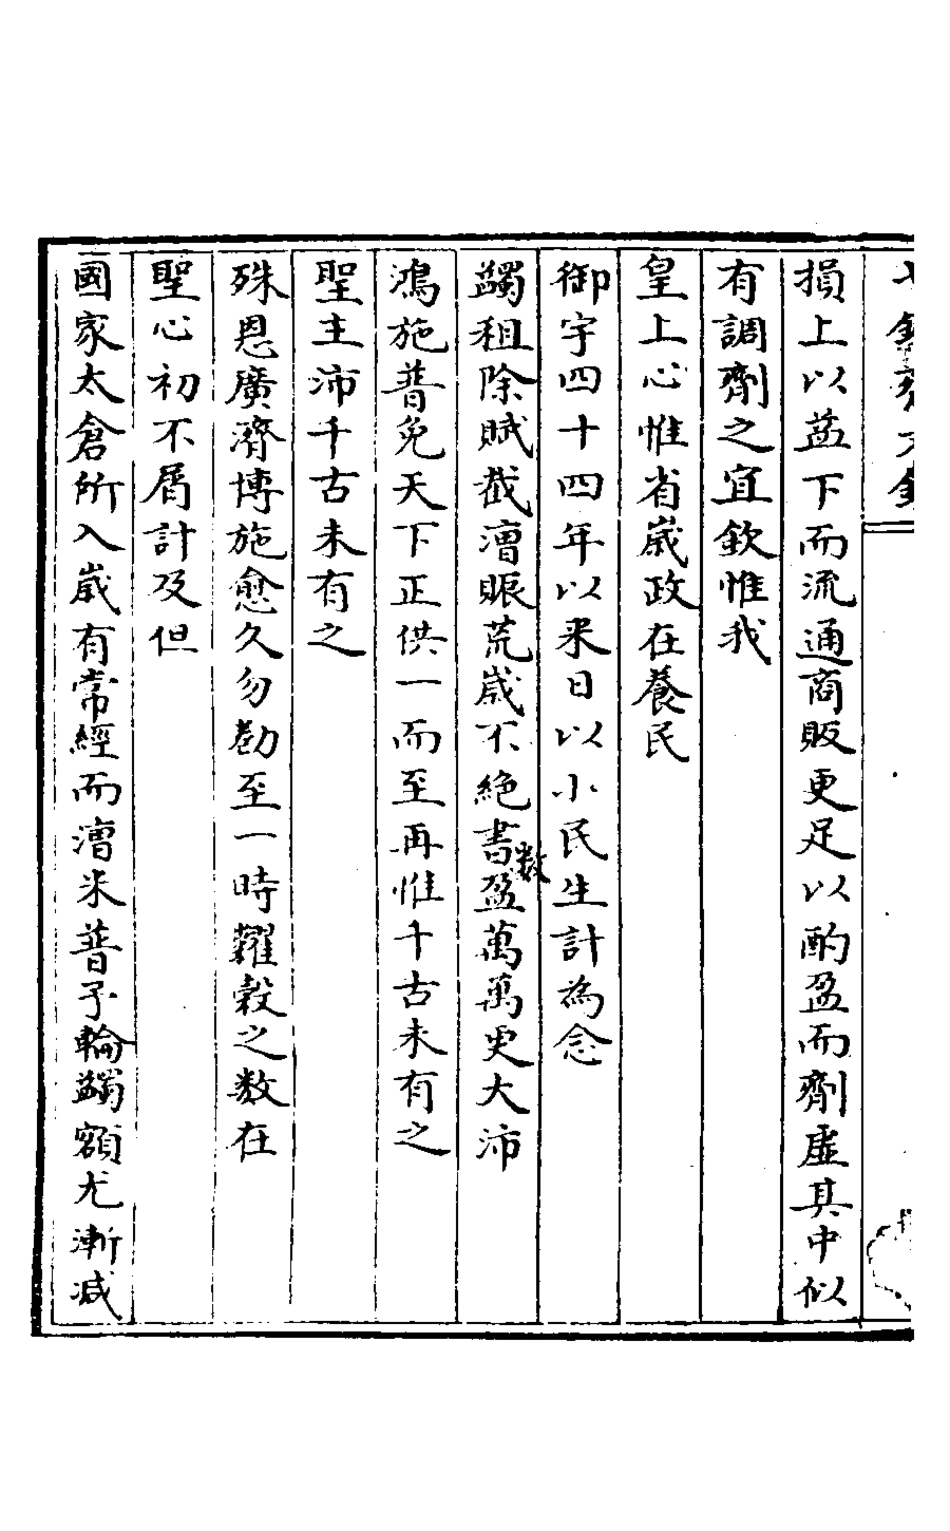 損上以益下而流通商販更足以酌盈而劑虛其中似
有調劑之宜欽惟我
皇上心惟省歲政在養民
御宇四十四年以來日以小民生計為念
蠲租除賦截漕賑荒歲不絕書数盈萬萬更大沛
鴻施普免天下正供一而至再惟千古未有之
聖主沛千古未有之
殊恩廣濟博施愈久勿勌至一時糶穀之数在
聖心初不屑計及但
國家太倉所入歲有常經而漕米普予輪蠲額尤漸减